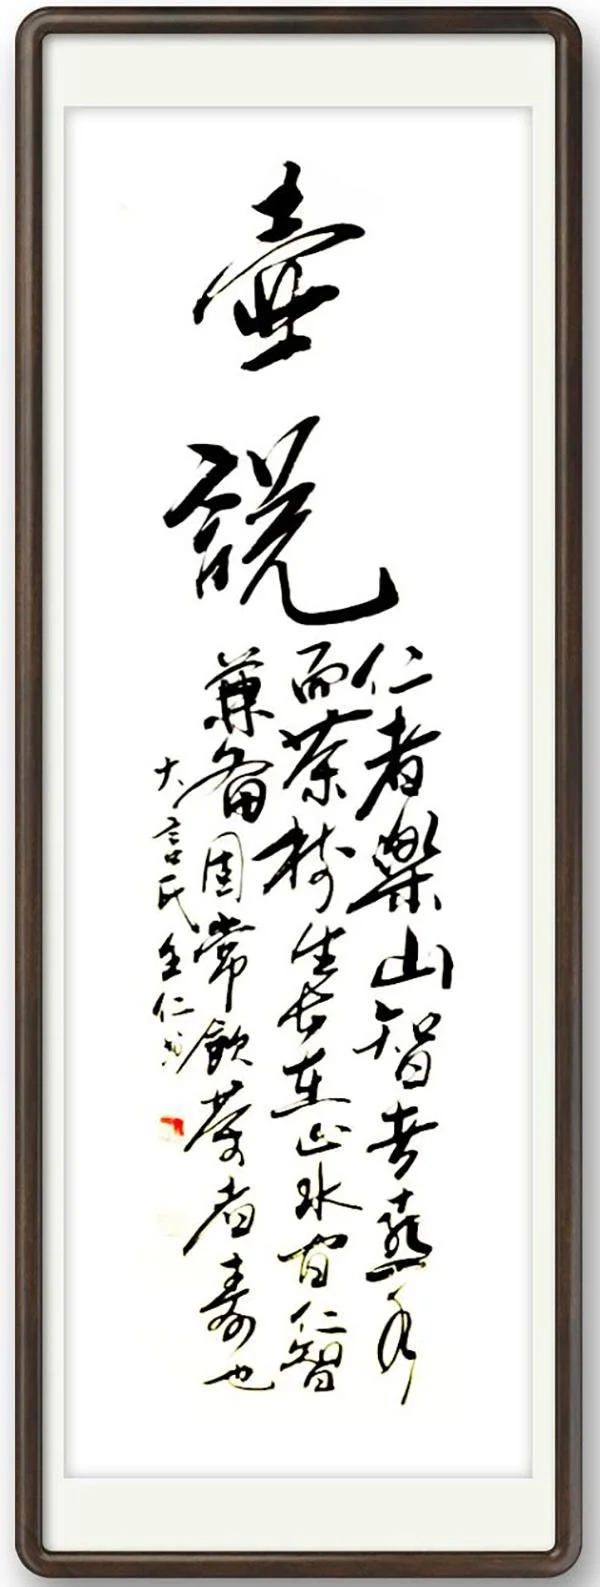 壺說
仁者樂山智者熹水
而茶樹生長在山水間仁智
兼備固常飲茶者壽也
大言氏全仁書